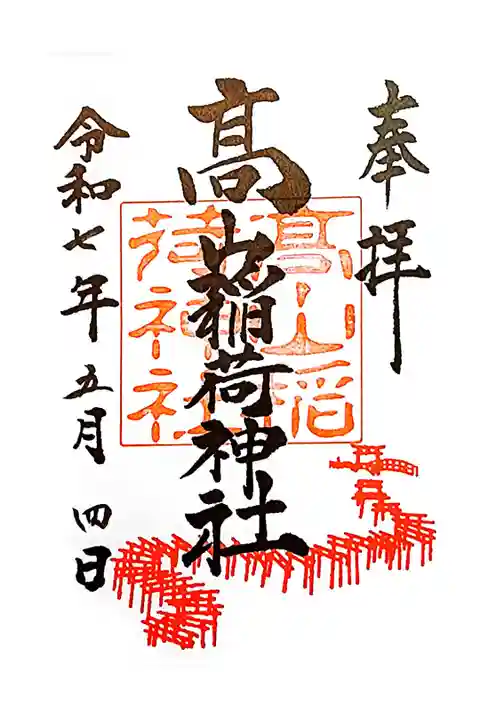 奉拝
髙山稲荷神社
髙山稲荷神社
令和七年五月四日